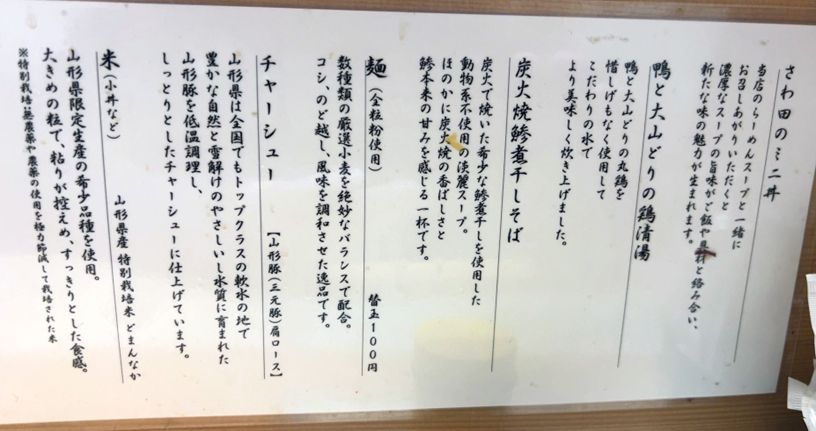 さわ田のミニ丼
当店のらーめんスープと一緒に
お召しあがりいただくと
濃厚なスープの旨味がご飯や具材と絡み合い、
新たな味の魅力が生まれます。
鴨と大山どりの鶏清湯
鴨と大山どりの丸鶏を
惜しげもなく使用して
こだわりの水で
より美味しく炊き上げました。
炭火焼鯵煮干しそば
炭火で焼いた希少な鯵煮干しを使用した
動物系不使用の淡麗スープ。
ほのかに炭火焼の香ばしさと
鯵本来の甘みを感じる一杯です。
麺(全粒粉使用) 替玉100円
数種類の厳選小麦を絶妙なバランスで配合。
コシ、のど越し、風味を調和させた逸品です。
チャーシュー 【山形豚(三元豚)肩ロース】
山形県は全国でもトップクラスの軟水の地で
豊かな自然と雪解けのやさしいし水質に育まれた
山形豚を低温調理し、
しっとりとしたチャーシューに仕上げています。
米(小丼など) 山形県産 特別栽培米 どまんなか
山形県限定生産の希少品種を使用。
大きめの粒で、粘りが控えめ、すっきりとした食感。
※特別栽培:無農薬や農薬の使用を極力節減して栽培された米